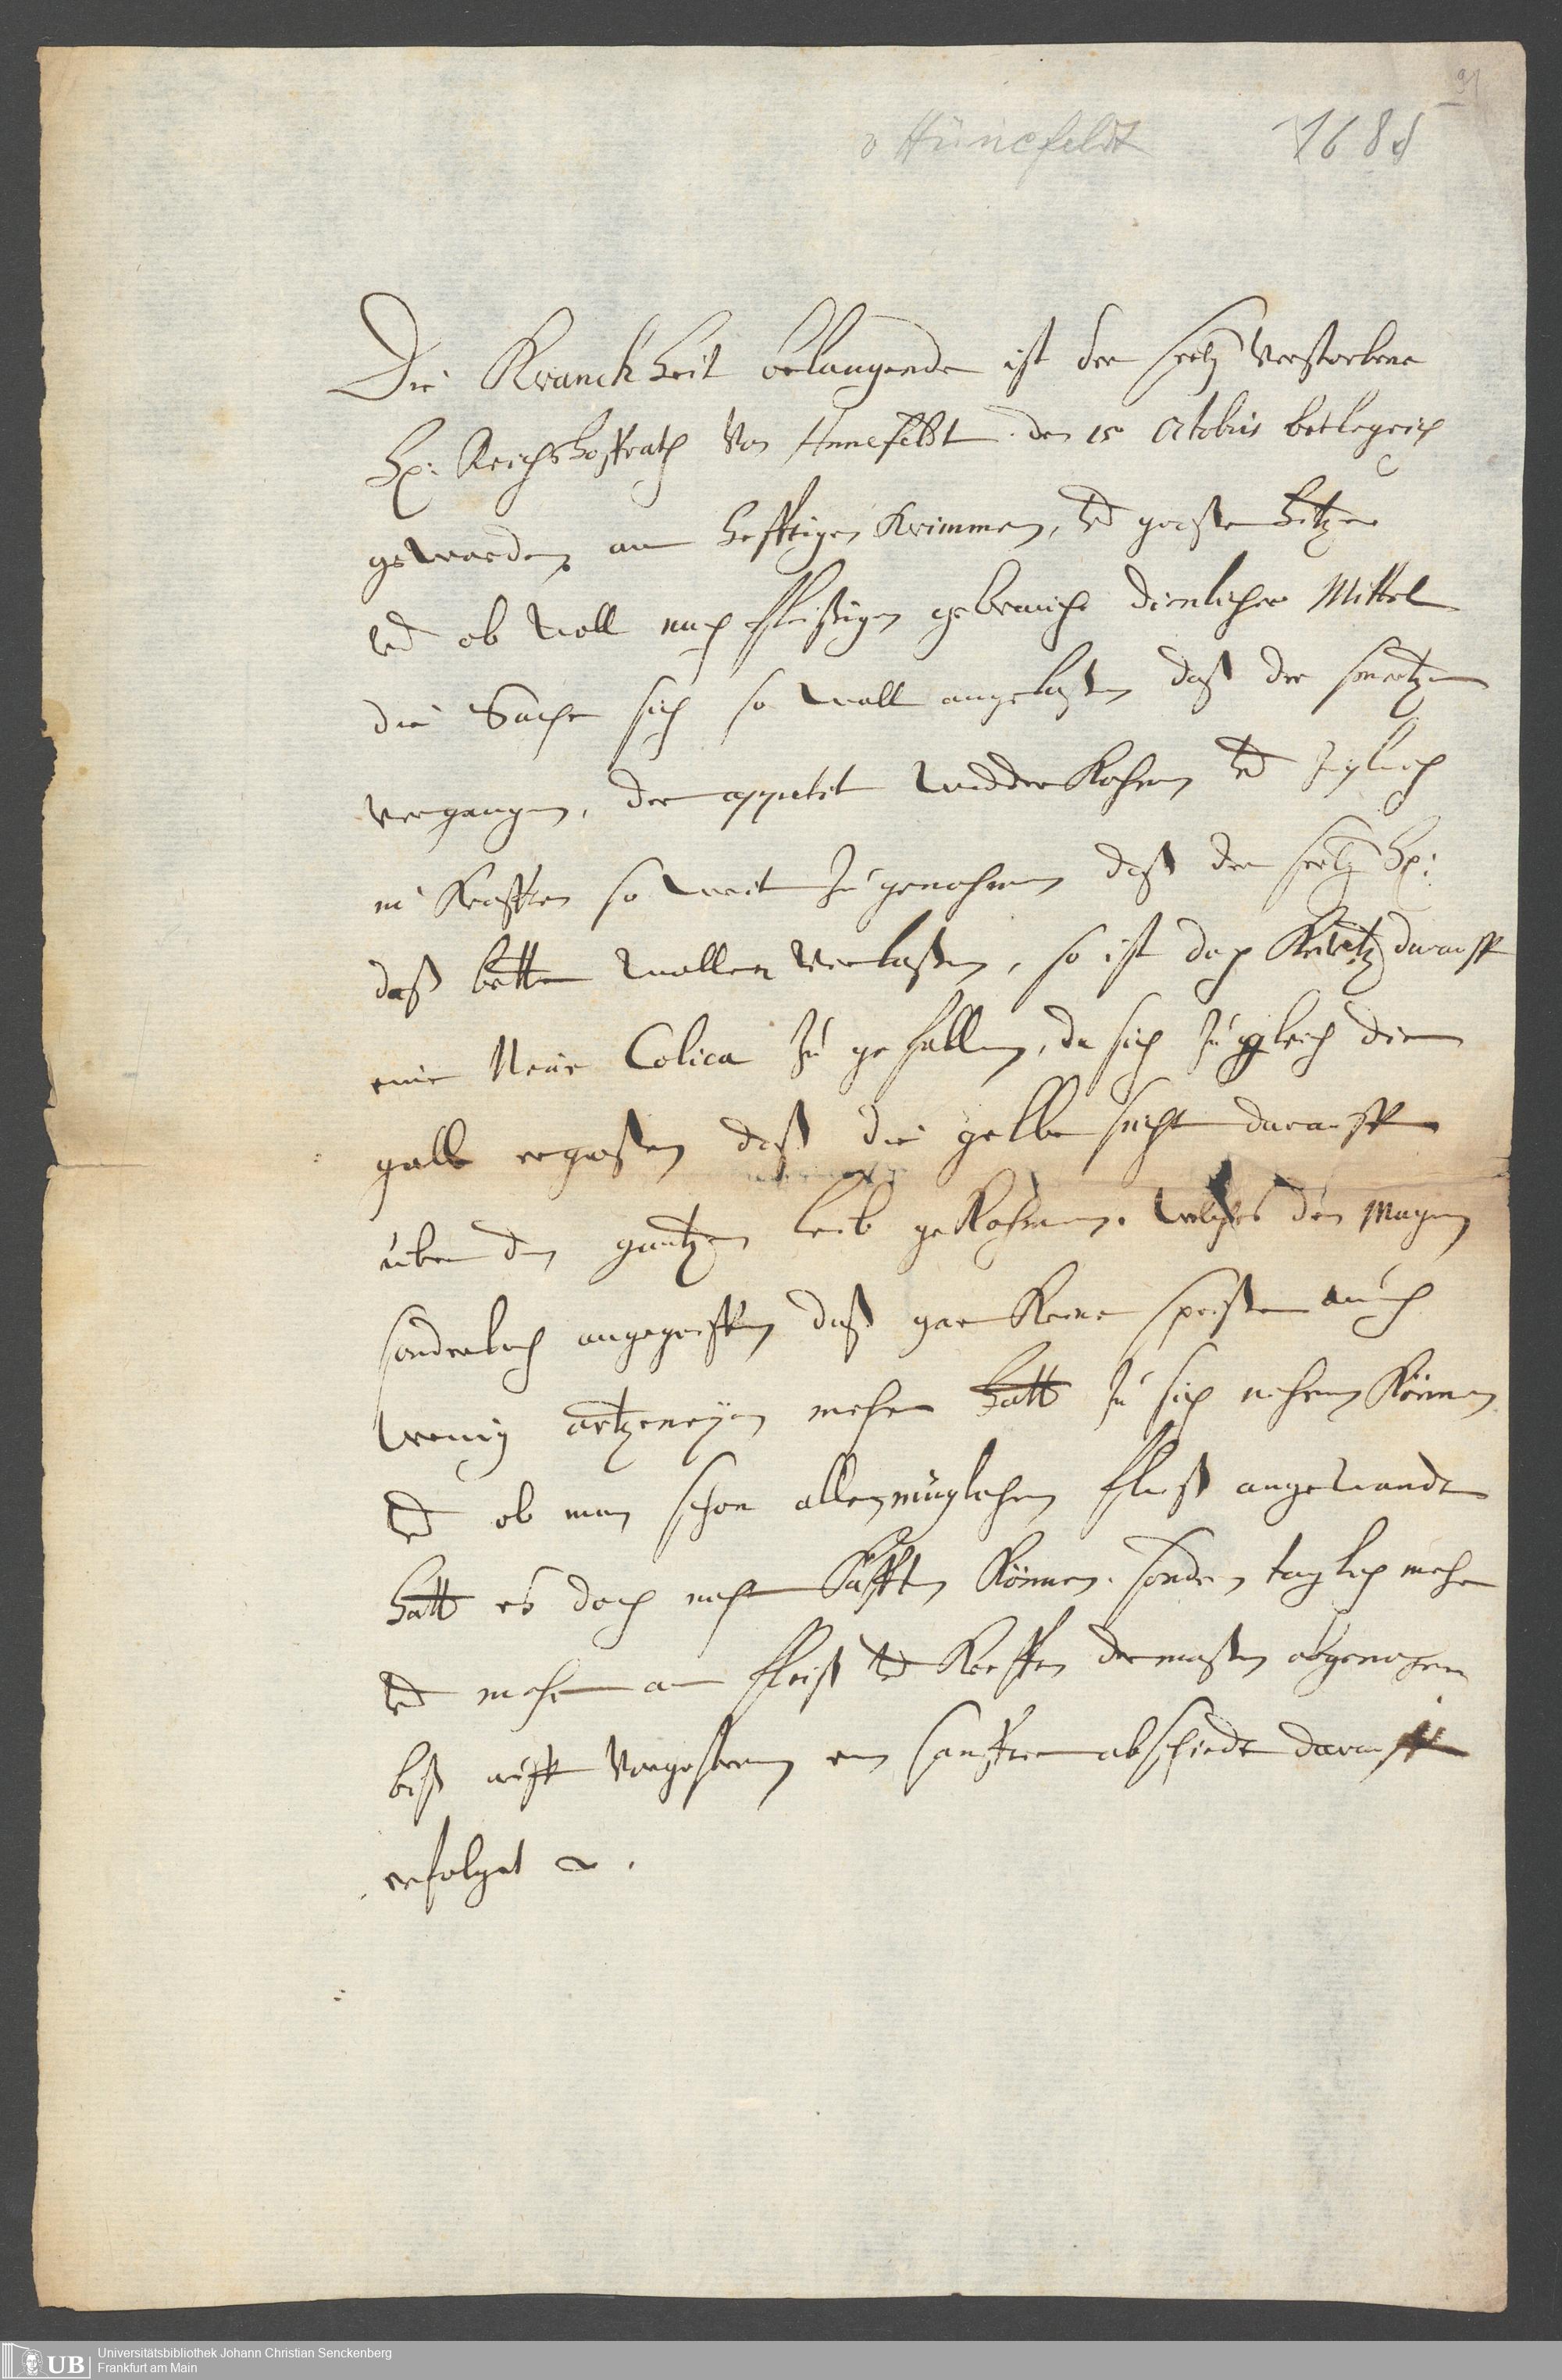 91
v Hünefeldt 1688
Die Kranckheit belangende ist der seelig Verstorbene
Hr: Reichshoffrath Von Hunefeldt den 15 Octobris betlegerich
geworden am hefftigen Krimmen, vnd großer Hitze
vnd ob woll nach fleißigen gebrauch dienlicher Mittel
die Sache sich so woll angelaßen daß der smertzen
vergangen, der appetit widder kohmen vnd zugleich
in Krafften so weit zugenohmen daß der seelig Hr:
daß bette wollen verlaßen, so ist doch darauff
eine Neüe Colica zu gefallen, da sich zugleich die
gall ergoßen daß die gelbesucht darauff
über den gantzen leib gekohmen. welches den Magen
sonderlich angegriffen daß gar keine speiße auch
wenig artzeneyen mehr hatt zu sich nehmen können
vnd ob man schon allen müglichen fleiß angewandt
hatt es doch nicht hafften können. sondern taglich mehr
vnd mehr an fleiß vnd Kreffen dermaßen abgenohmen
biß auff Vorgestern ein sanffter abschiedt darauff
erfolget
UB Universitätsbibliothek Johann Christian Senckenberg
Frankfurt am Main